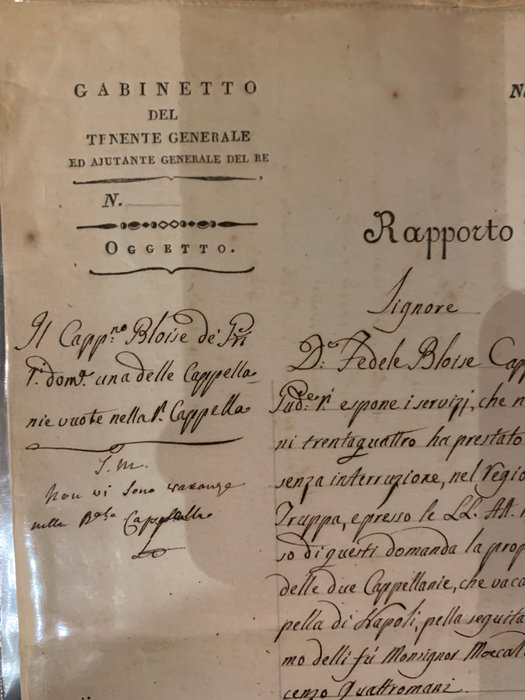 GABINETTO
DEL
TENENTE GENERALE
ED AJUTANTE GENERALE DEL RE
N.
OGGETTO.
Il Capp.no Bloise de'
r.i dom.a una delle Cappella-
nie vuote nella R. Cappella
S. M.
Non vi sono vacanze
nella R.le Cappella
N.
Rapporto
Signore
D. Fedele Bloise Cap
espone i servizi, che n
ni trentaquattro ha prestato
senza interruzione, nel Regio
Truppa, e presso le LL. AA.
so di questi domanda la prop
delle due Cappellanie, che vaca
pella di Napoli, pella seguita
mo delli fù Monsignor
cenzo Quattromani.